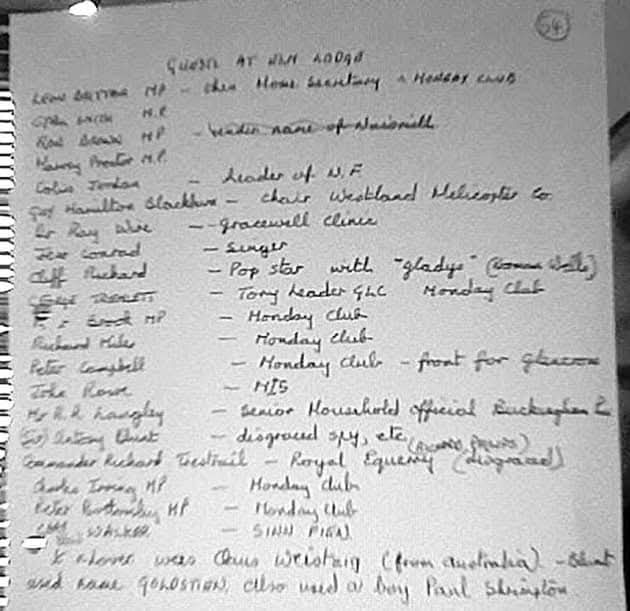 54
GUESTS AT ELM LODGE
LEON BRITTAN MP - then Home Secretary MONDAY CLUB
M.P.
Ron Brown MP -
Harvey Proctor M.P.
Colin Jordan - Leader of N.F
Guy Hamilton Blackburn - Chair Westland Helicopter Co
Dr Ray Wire - Gracewell Clinic
Jess Conrad - Singer
Cliff Richard - Pop star with "gladys"
- Tory Leader GLC Monday Club
MP - Monday Club
Richard Miles - Monday Club
Peter Campbell - Monday Club - front for
John Rowe - MI5
Mr R.R. Langley - Senior Household official Buckingham
Antony Blunt - disgraced spy, etc
Commander Richard Trestrail - Royal Equerry (disgraced)
Charles Irving MP - Monday Club
Peter Bottomley MP - Monday Club
WALKER - SINN FIEN
(from Australia) - Blunt
used name GOLDSTIEN, also used a boy Paul